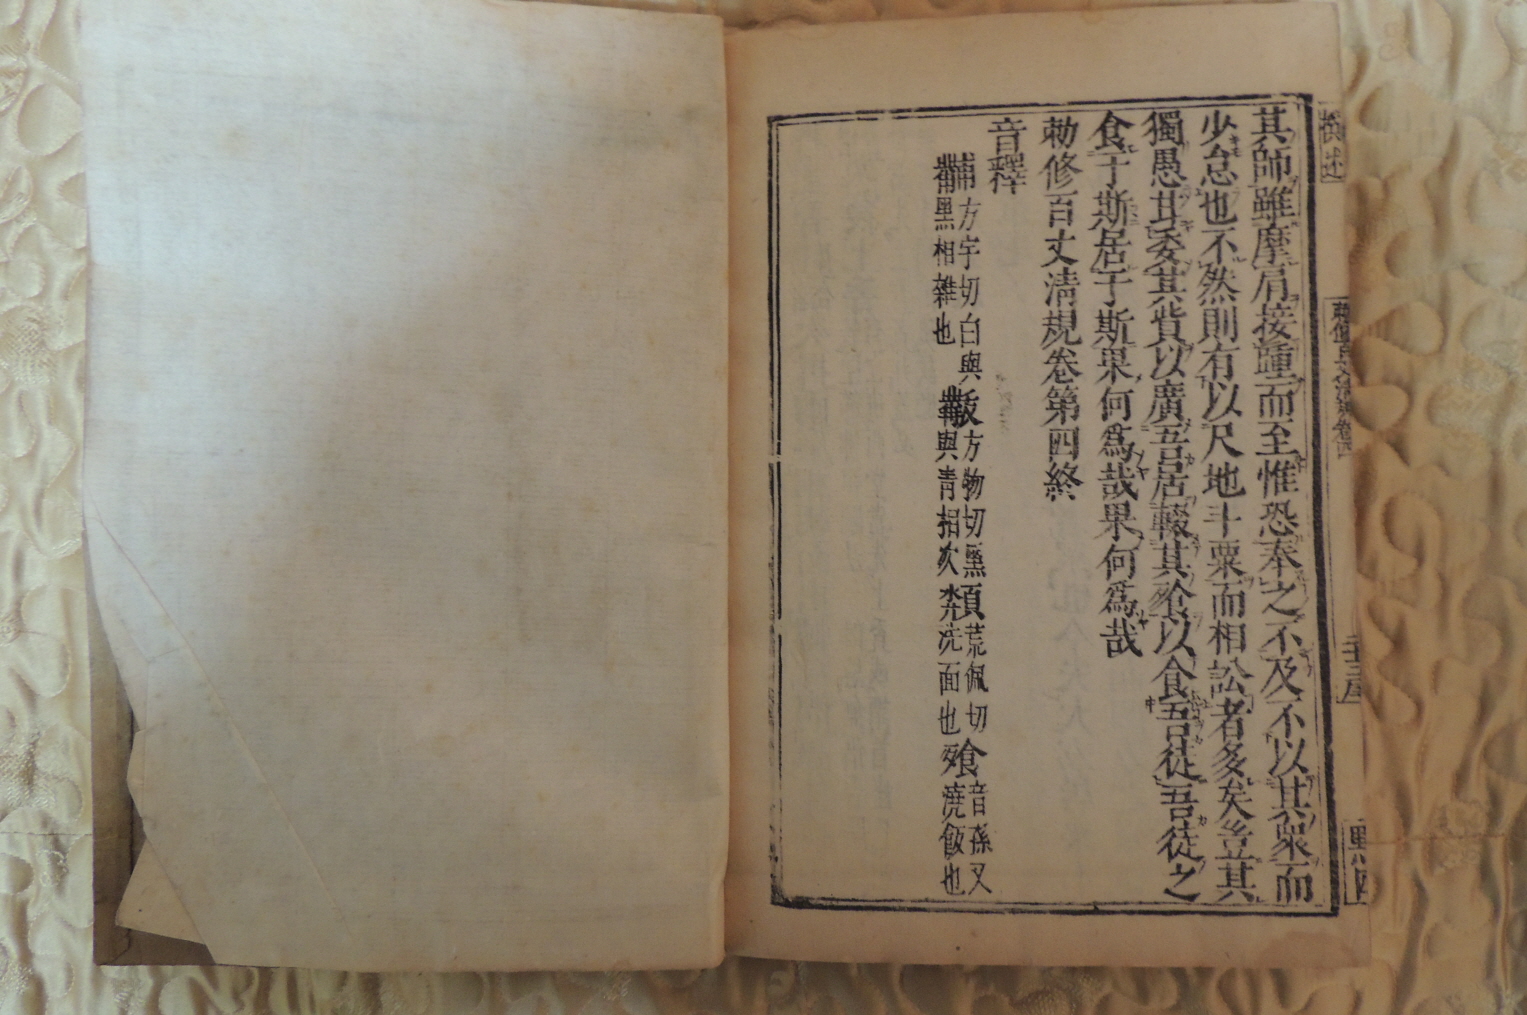 撰述
勅修百丈清規卷四
二十三
黑四
其師雖摩肩接踵而至惟恐奉之不及不以其衆而
少怠也不然則有以尺地斗粟而相訟者多矣豈其
獨愚其委其貲以廣吾居輟其飱以食吾徒吾徒之
食于斯居于斯果何爲哉果何爲哉
勅修百丈清規卷第四終
音釋
黼方宇切白與黑相雜也 黻方物切黑與青相次 頮荒佩切洗面也 飱音孫又澆飯也